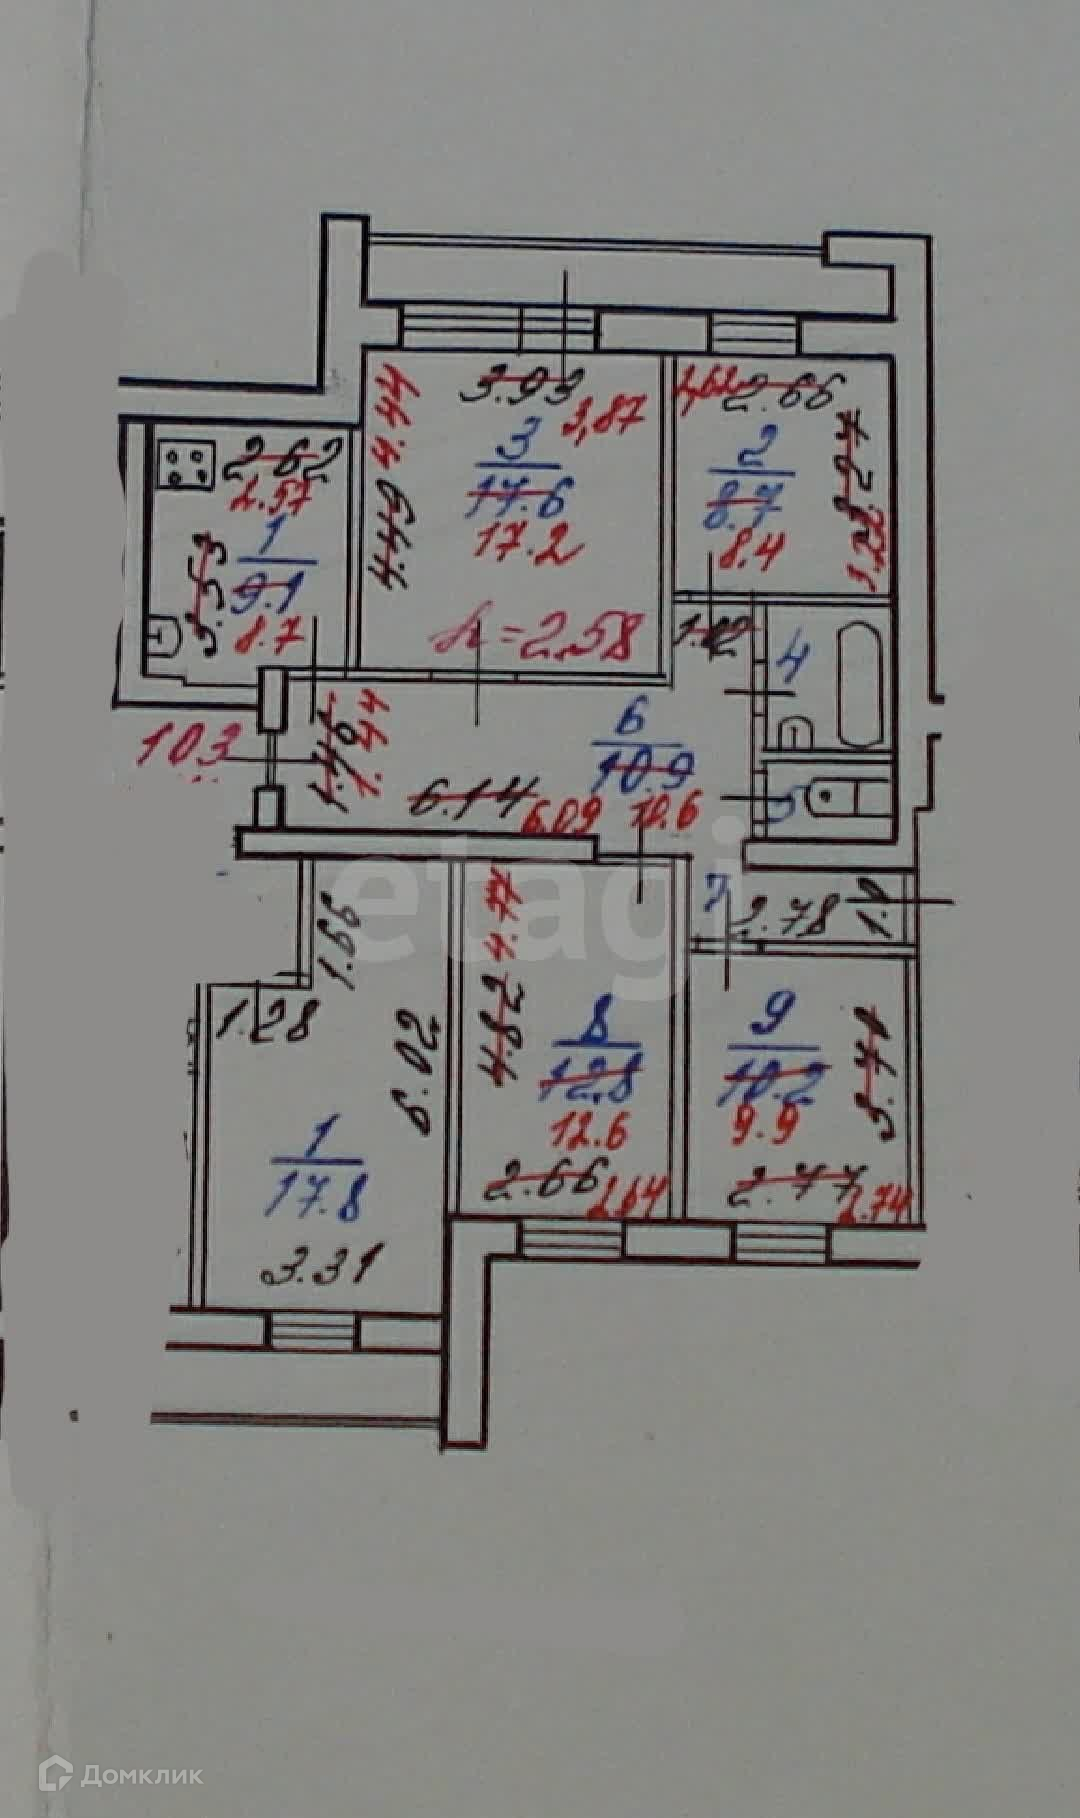 3.93
3,87
4.44
4.49
3
17.6
17.2
h=2.58
2,62
2.66
2
8.7
8.4
3.27
3.22
2.62
2.57
1
9.1
8.7
3.53
1.12
4
103
1.46
1.44
6.14
6.09
6
10.9
10.6
5
etagi
7
2.78
1.0
1.66
1.28
6.02
1
17.8
3.31
4.77
4.82
8
12.8
12.6
2.66
2,64
9
10.2
9.9
3.71
2.77
2.74
Домклик